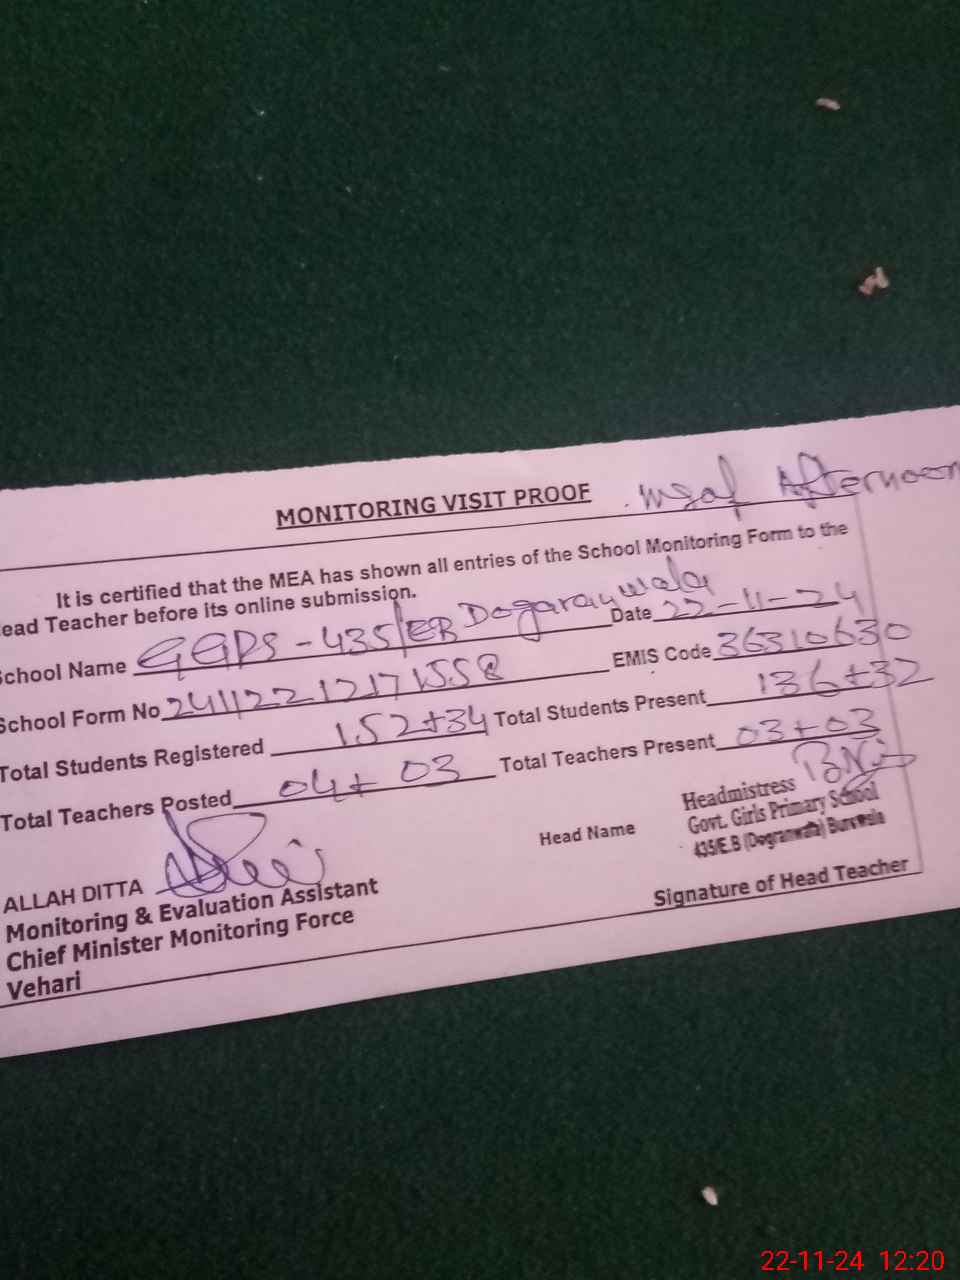 MONITORING VISIT PROOF Afternoon
It is certified that the MEA has shown all entries of the School Monitoring Form to the
ead Teacher before its online submission.
School Name GGPS - 435/EB Dogaranwala Date 22-11-24
School Form No 24112212171558 EMIS Code 36310630
Total Students Registered 152+34 Total Students Present 136+32
Total Teachers Posted 04+03 Total Teachers Present 03+03
Head Name Headmistress
Govt. Girls Primary School
435/E.B (Dogranwala) Burewala
ALLAH DITTA
Monitoring & Evaluation Assistant
Signature of Head Teacher
Chief Minister Monitoring Force
Vehari
22-11-24 12:20